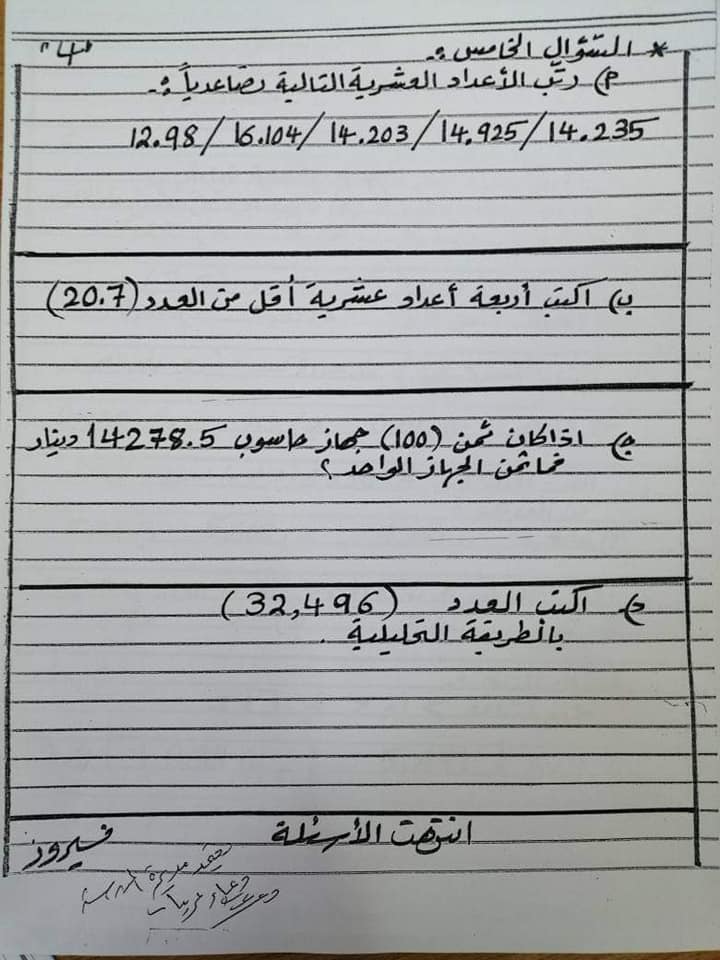 * السؤال الخامس :. "4"
أ) رتّب الأعداد العشرية التالية تصاعدياً :.
12.98 / 16.104 / 14.203 / 14.925 / 14.235
ب) اكتب أربعة أعداد عشرية أقل من العدد (20.7)
ج) اذا كان ثمن (100) جهاز حاسوب 14278.5 دينار
فما ثمن الجهاز الواحد ؟
د) اكتب العدد (32,496)
بالطريقة التحليلية .
انتهت الأسئلة
فيروز